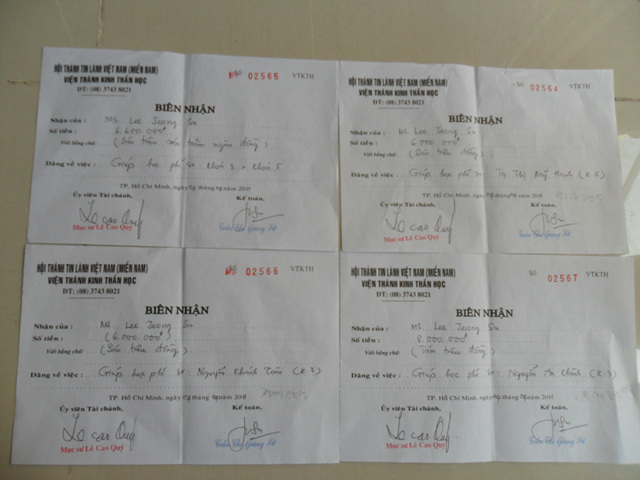 HỘI THÁNH TIN LÀNH VIỆT NAM (MIỀN NAM)
VIỆN THÁNH KINH THẦN HỌC
ĐT: (08) 3743 8021
Số 02565 VTKTH
BIÊN NHẬN
Nhận của : MS. Lee Jeong Su
Số tiền : 6.600.000đ
Viết bằng chữ: (Sáu triệu sáu trăm ngàn đồng)
Dâng về việc : Giúp học phí sv. Khoá 3 + Khoá 5
TP. Hồ Chí Minh, ngày tháng năm
Ủy viên Tài chánh, Kế toán,
Le cao Quý
Mục sư Lê Cao Quý
HỘI THÁNH TIN LÀNH VIỆT NAM (MIỀN NAM)
VIỆN THÁNH KINH THẦN HỌC
ĐT: (08) 3743 8021
Số 02564 VTKTH
BIÊN NHẬN
Nhận của : MS. Lee Jeong Su
Số tiền : 6.000.000đ
Viết bằng chữ: (Sáu triệu đồng)
Dâng về việc : Giúp học phí sv. Thị Mỹ Hạnh (K.5)
TP. Hồ Chí Minh, ngày tháng năm
Ủy viên Tài chánh, Kế toán,
Le cao Quý
Mục sư Lê Cao Quý
HỘI THÁNH TIN LÀNH VIỆT NAM (MIỀN NAM)
VIỆN THÁNH KINH THẦN HỌC
ĐT: (08) 3743 8021
Số 02566 VTKTH
BIÊN NHẬN
Nhận của : MS. Lee Jeong Su
Số tiền : (6.000.000đ)
Viết bằng chữ: (Sáu triệu đồng)
Dâng về việc : Giúp học phí sv. Nguyễn Khánh (K-3)
TP. Hồ Chí Minh, ngày tháng năm
Ủy viên Tài chánh, Kế toán,
Le cao Quý
Mục sư Lê Cao Quý
HỘI THÁNH TIN LÀNH VIỆT NAM (MIỀN NAM)
VIỆN THÁNH KINH THẦN HỌC
ĐT: (08) 3743 8021
Số 02567 VTKTH
BIÊN NHẬN
Nhận của : MS. Lee Jeong Su
Số tiền : 8.000.000đ
Viết bằng chữ: (Tám triệu đồng)
Dâng về việc : Giúp học phí sv. Nguyễn Khánh (K-3)
TP. Hồ Chí Minh, ngày tháng năm
Ủy viên Tài chánh, Kế toán,
Le cao Quý
Mục sư Lê Cao Quý